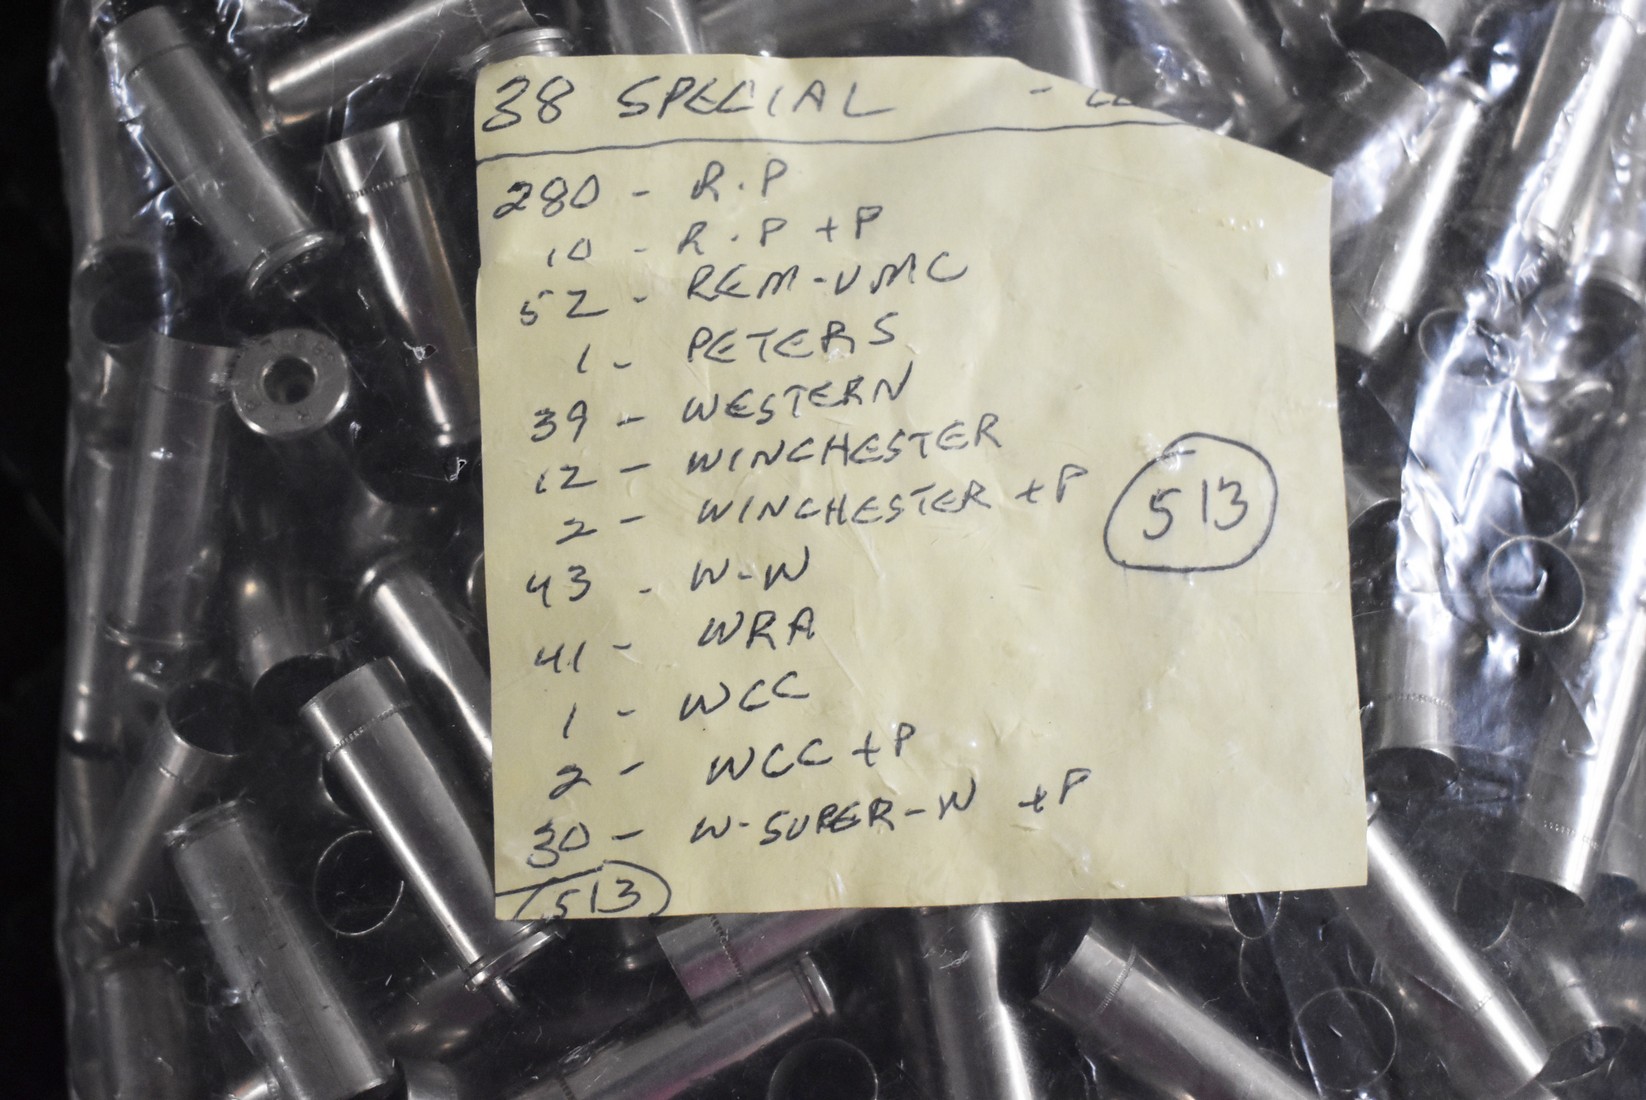 38 SPECIAL -
280 - R.P
10 - R.P +P
52 - REM-UMC
1 - PETERS
39 - WESTERN
12 - WINCHESTER
2 - WINCHESTER +P
513
43 - W-W
41 - WRA
1 - WCC
2 - WCC +P
30 - W-SUPER-W +P
513